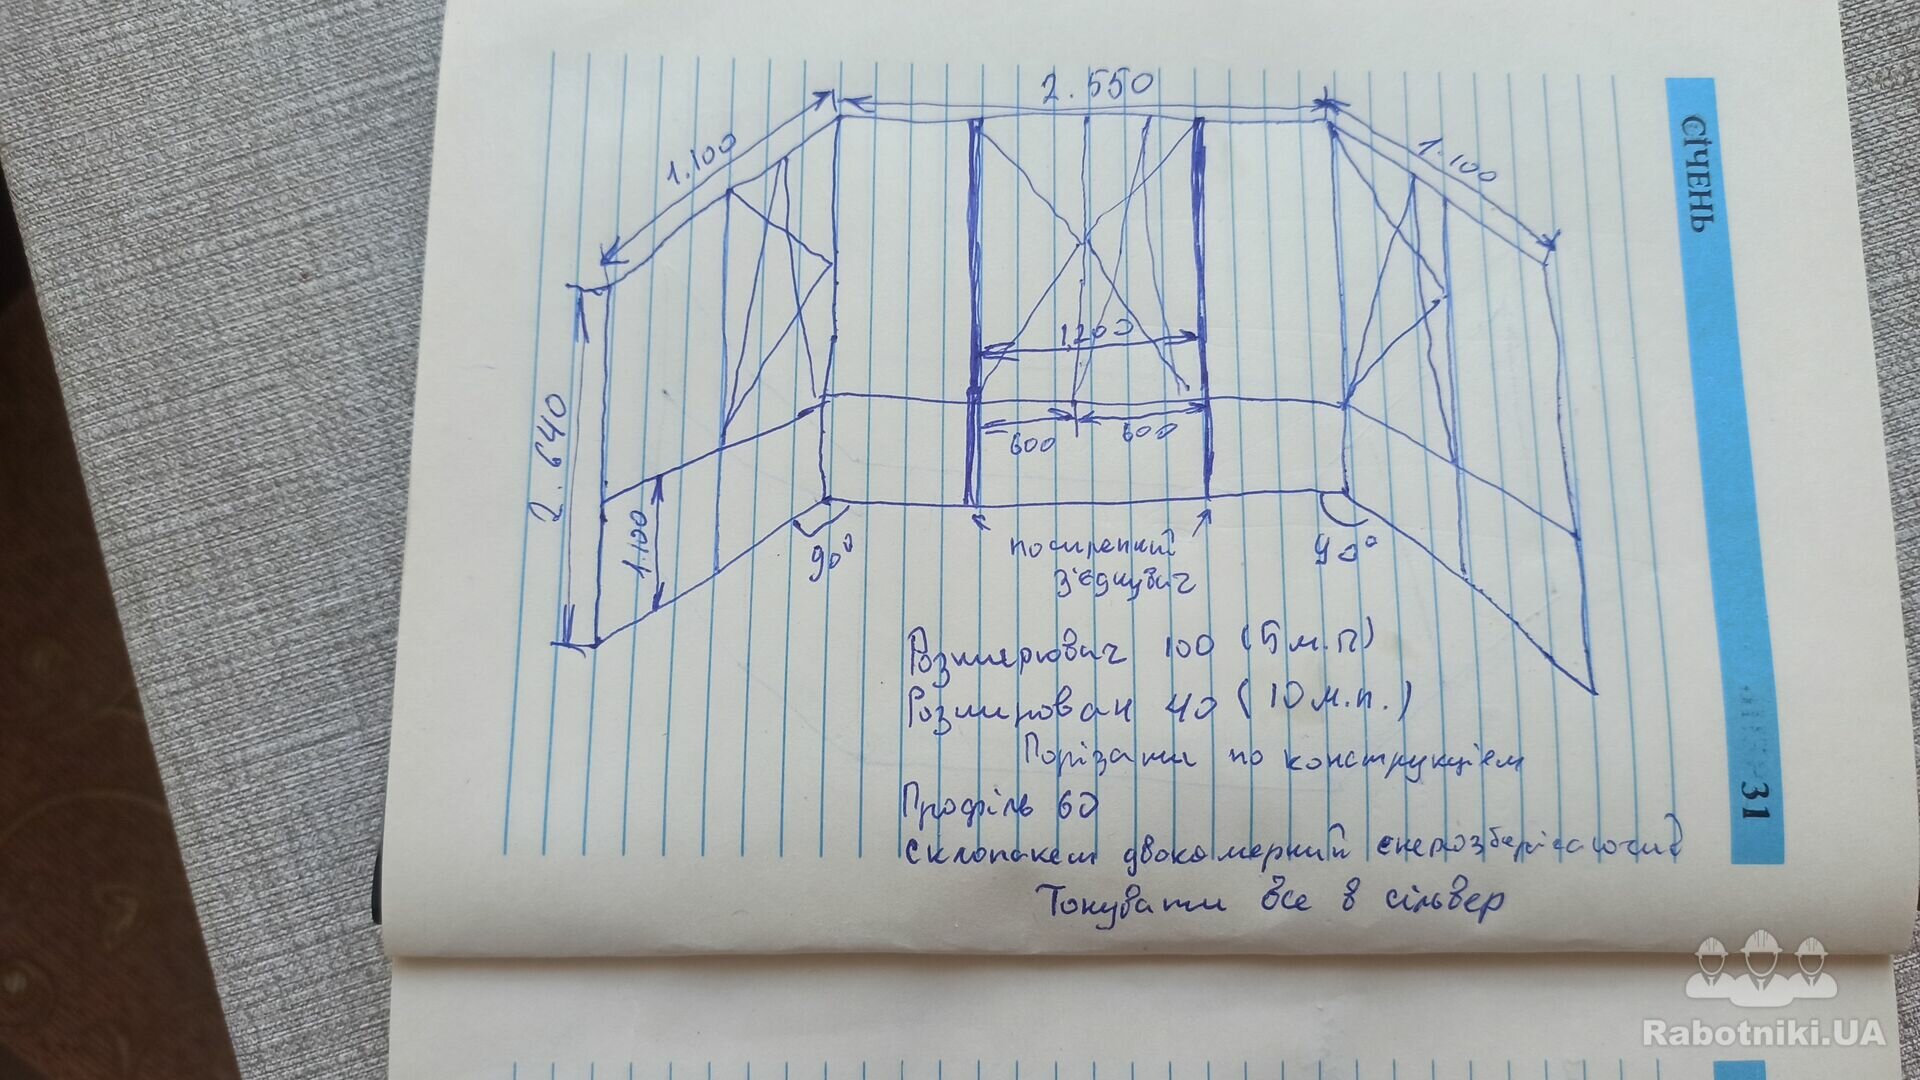 2.550
1.100
1.100
СІЧЕНЬ
1200
2.640
600
600
1.100
90°
посилений
90°
з'єднувач
Розширювач 100 (5 м.п)
Розширювач 40 (10 м.п.)
Порізати по конструкціям
Профіль 60
31
склопакет двокамерний енергозберігаючий
Тонувати все в сільвер
Rabotniki.UA